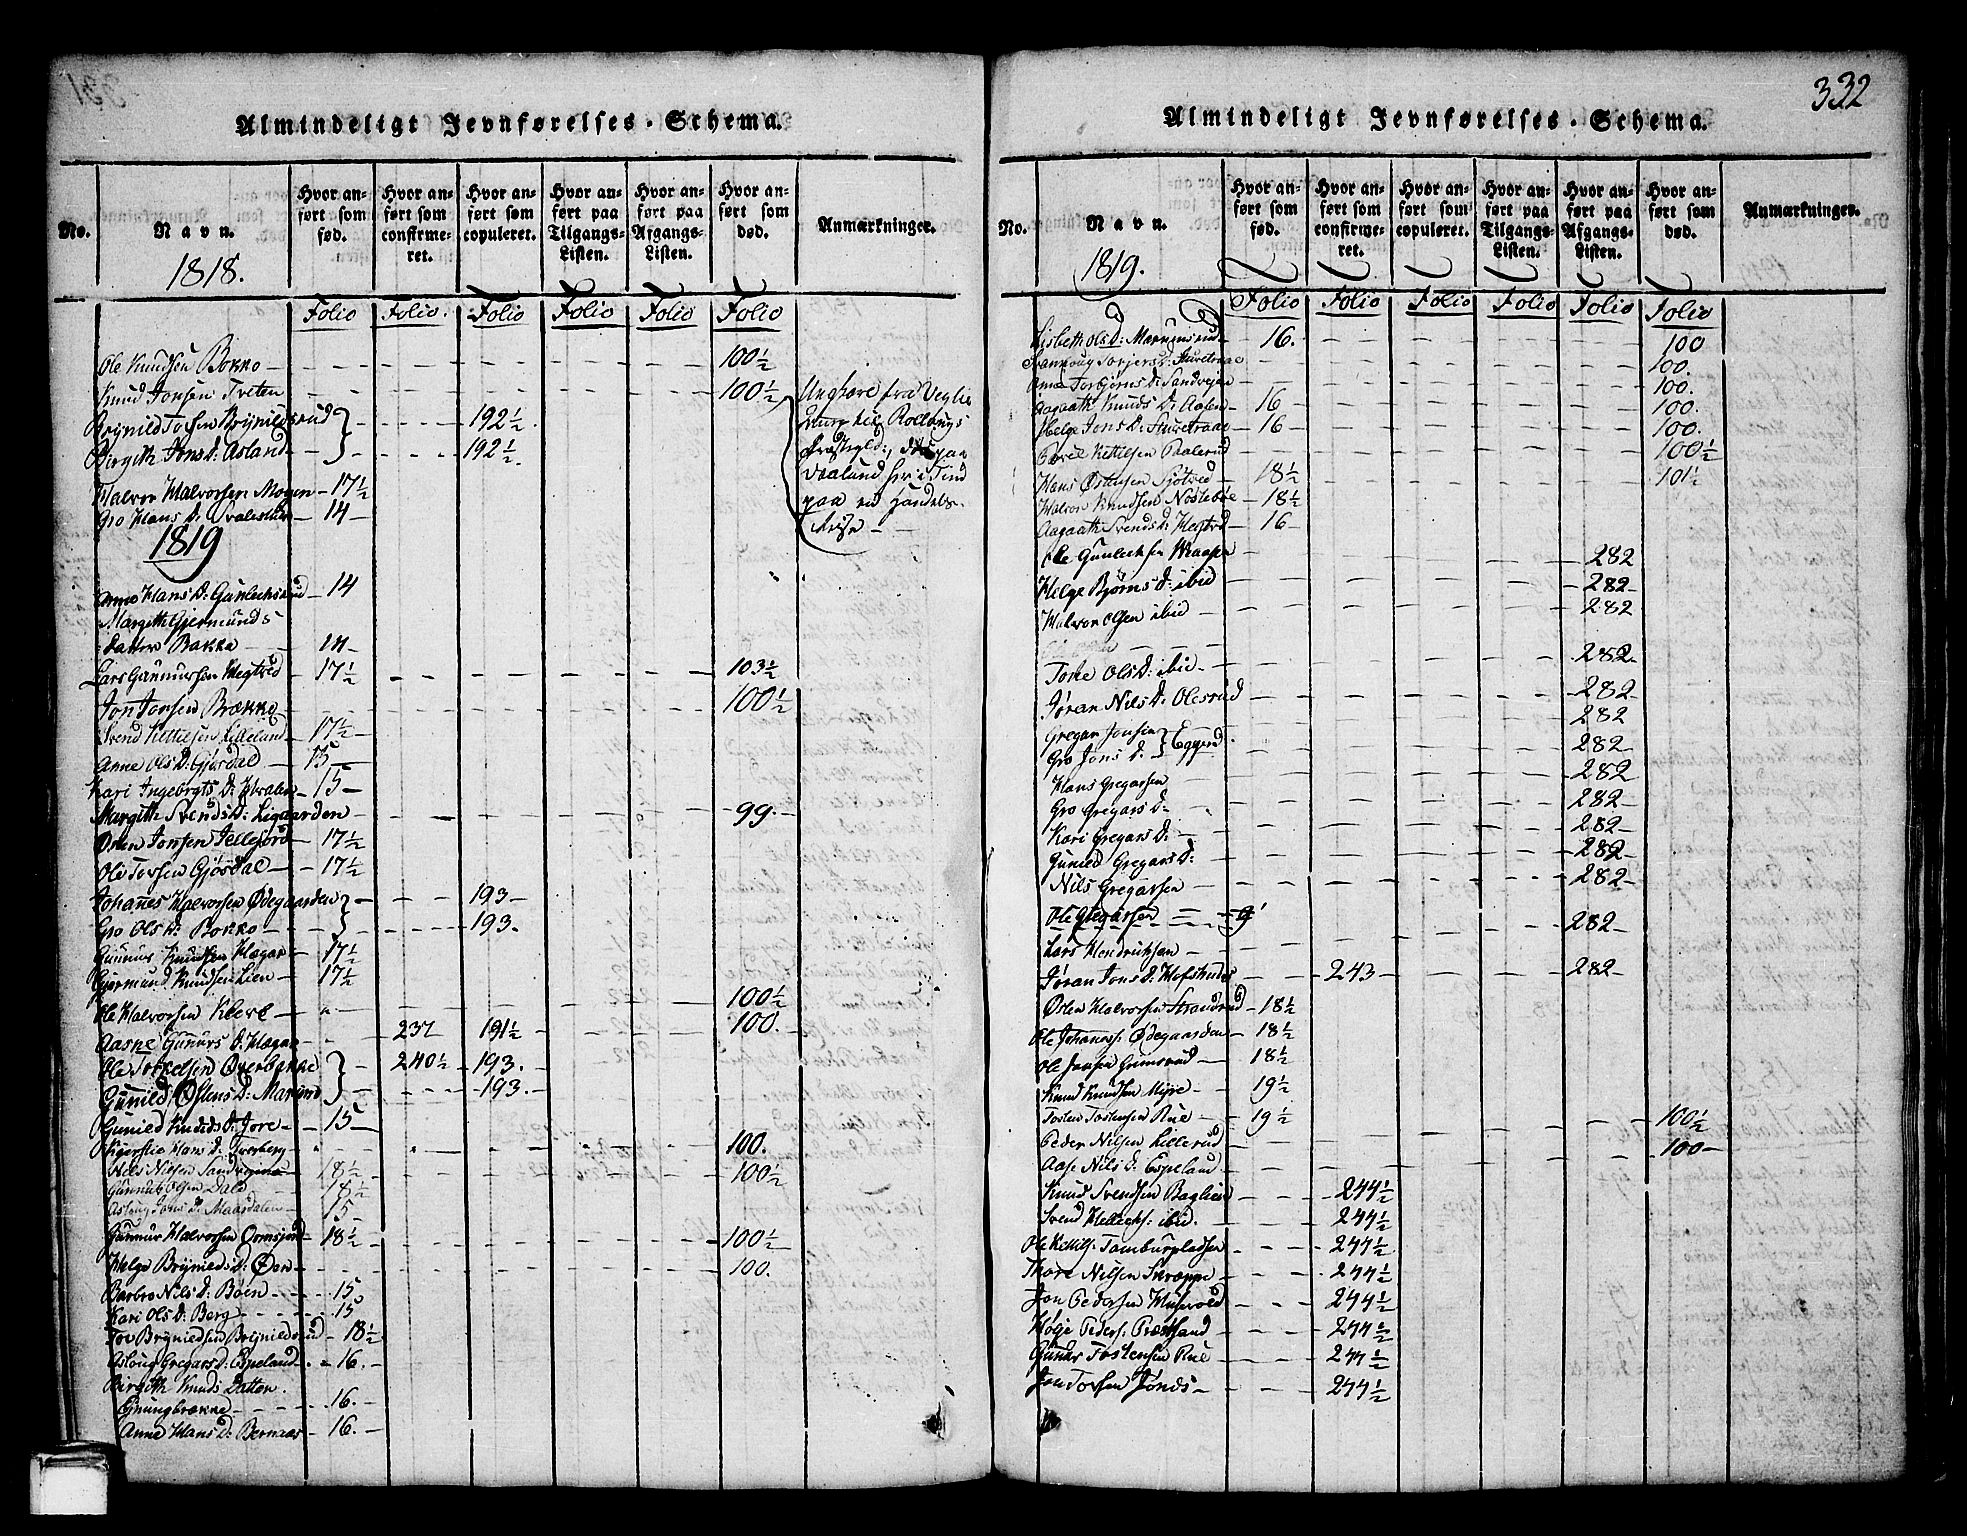 332
Almindeligt Jevnførelses-Schema.
No.
Navn.
Hvor anført som fød.
Hvor anført som confirmeret.
Hvor anført som copuleret.
Hvor anført paa Tilgangs-Listen.
Hvor anført paa Afgangs-Listen.
Hvor anført som død.
Anmærkninger.
1818.
Folio Folio Folio Folio Folio Folio
Ole Knudsen Bokko 100½
Knud Jonsen Tveten 100½
Brynild Torsen Brynildsrud 192½
Birgith Jons D: Asland 192½
Halvor Halvorsen Mogen 17½
Gro Hans D: 14
1819
Anne Hans D: Gunlechsrud 14
Margith Gjermunds
Datter Bakka 14
Lars Gunnursen Hegtved 17½ 103½
Jon Jonsen Brække 100½
Svend Kittilsen Lilleland 17½
Anne Ols D: Gjøsdal 15
Kari Ingebrgts D: Hvalen 15
Margith Svends D: Ligaarden 99
Osten Jonsen 17½
Ole Torsen Gjøsdal 17½
Johannes Halvorsen Ødegaarden 193
Gro Ols D: Bokko 193.
Gunnur Knudsen Hagar 17½
Gjermund Knudsen Lien 17½
Ole Halvorsen 100½
Aaspe Gunurs D: Hagar 237 191½ 100.
Ole Torkelsen Øverbække 240½ 193.
Gunild Østens D: 193.
Gunild Knuds D: Jore 15
Hans D: 100.
Nils Nilsen 18½ 100½
Olsen Dale 18½
Aslaug Jons D: Maardalen 15
Gunnur Halvorsen 18½ 100½
Helge Brynilds D: Øen 100.
Barbro Nils D: Bøen 15
Kari Ols D: Berg 15
Tov Brynildsen Brynildsrud 18½
Aslaug Gregars D: Espeland 16.
Birgith Knuds Datter
Gjuungbrække 16.
Anne Hans D: Bernaas 16.
Ungkare fra Veglie
Rollaugs
Præstegield,
her i Tind
paa en Handels-
Reise
Almindeligt Jevnførelses-Schema.
No.
Navn.
Hvor anført som fød.
Hvor anført som confirmeret.
Hvor anført som copuleret.
Hvor anført paa Tilgangs-Listen.
Hvor anført paa Afgangs-Listen.
Hvor anført som død.
Anmærkninger.
1819.
Folio Folio Folio Folio Folio Folio
Lisbeth Ols D: 16. 100
Torjers D: 100.
Anne Torbjørns D: Sandvejen 100.
Aagaath Knuds D: Aalen 16 100.
Helge Jons D: 16 100.
Kittilsen Paalerud 100½
Hans Østensen Sjøtved 18½ 101½
Halvor Knudsen 18½
Aagaath Svends D: Hegtved 16
Ole Gunlechsen 282
Helge Bjørns D: ibid 282
Halvor Olsen ibid 282
Tone Ols D: ibid 282
Jøran Nils D: Olesrud 282
Gregar Jonsen 282
Gro Jons D: 282
Hans Gregarsen 282
Gro Gregars D: 282
Kari Gregars D: 282
Gunild Gregars D: 282
Nils Gregarsen 282
Ole Gregarsen 282
Lars Hendrichsen
Jøran Jons D: 243 282
Østen Halvorsen Strandrud 18½
Ole Johannss: Ødegaarden 18½
Ole Jonsen Grimsrud 18½
Knud Knudsen Myre 19½
Tosten Tostensen Rue 19½
Peder Nilsen Lillerud 100½
Aase Nils D: Espeland 100
Knud Svendsen Baglien 244½
Svend ibid. 244½
Ole Kittils: Tamburpladsen 244½
Thore Nilsen Skræppe 244½
Jon Pedersen 244½
Peders: 244½
Gunur Tostensen Rue 244½
Jon Torsen 244½